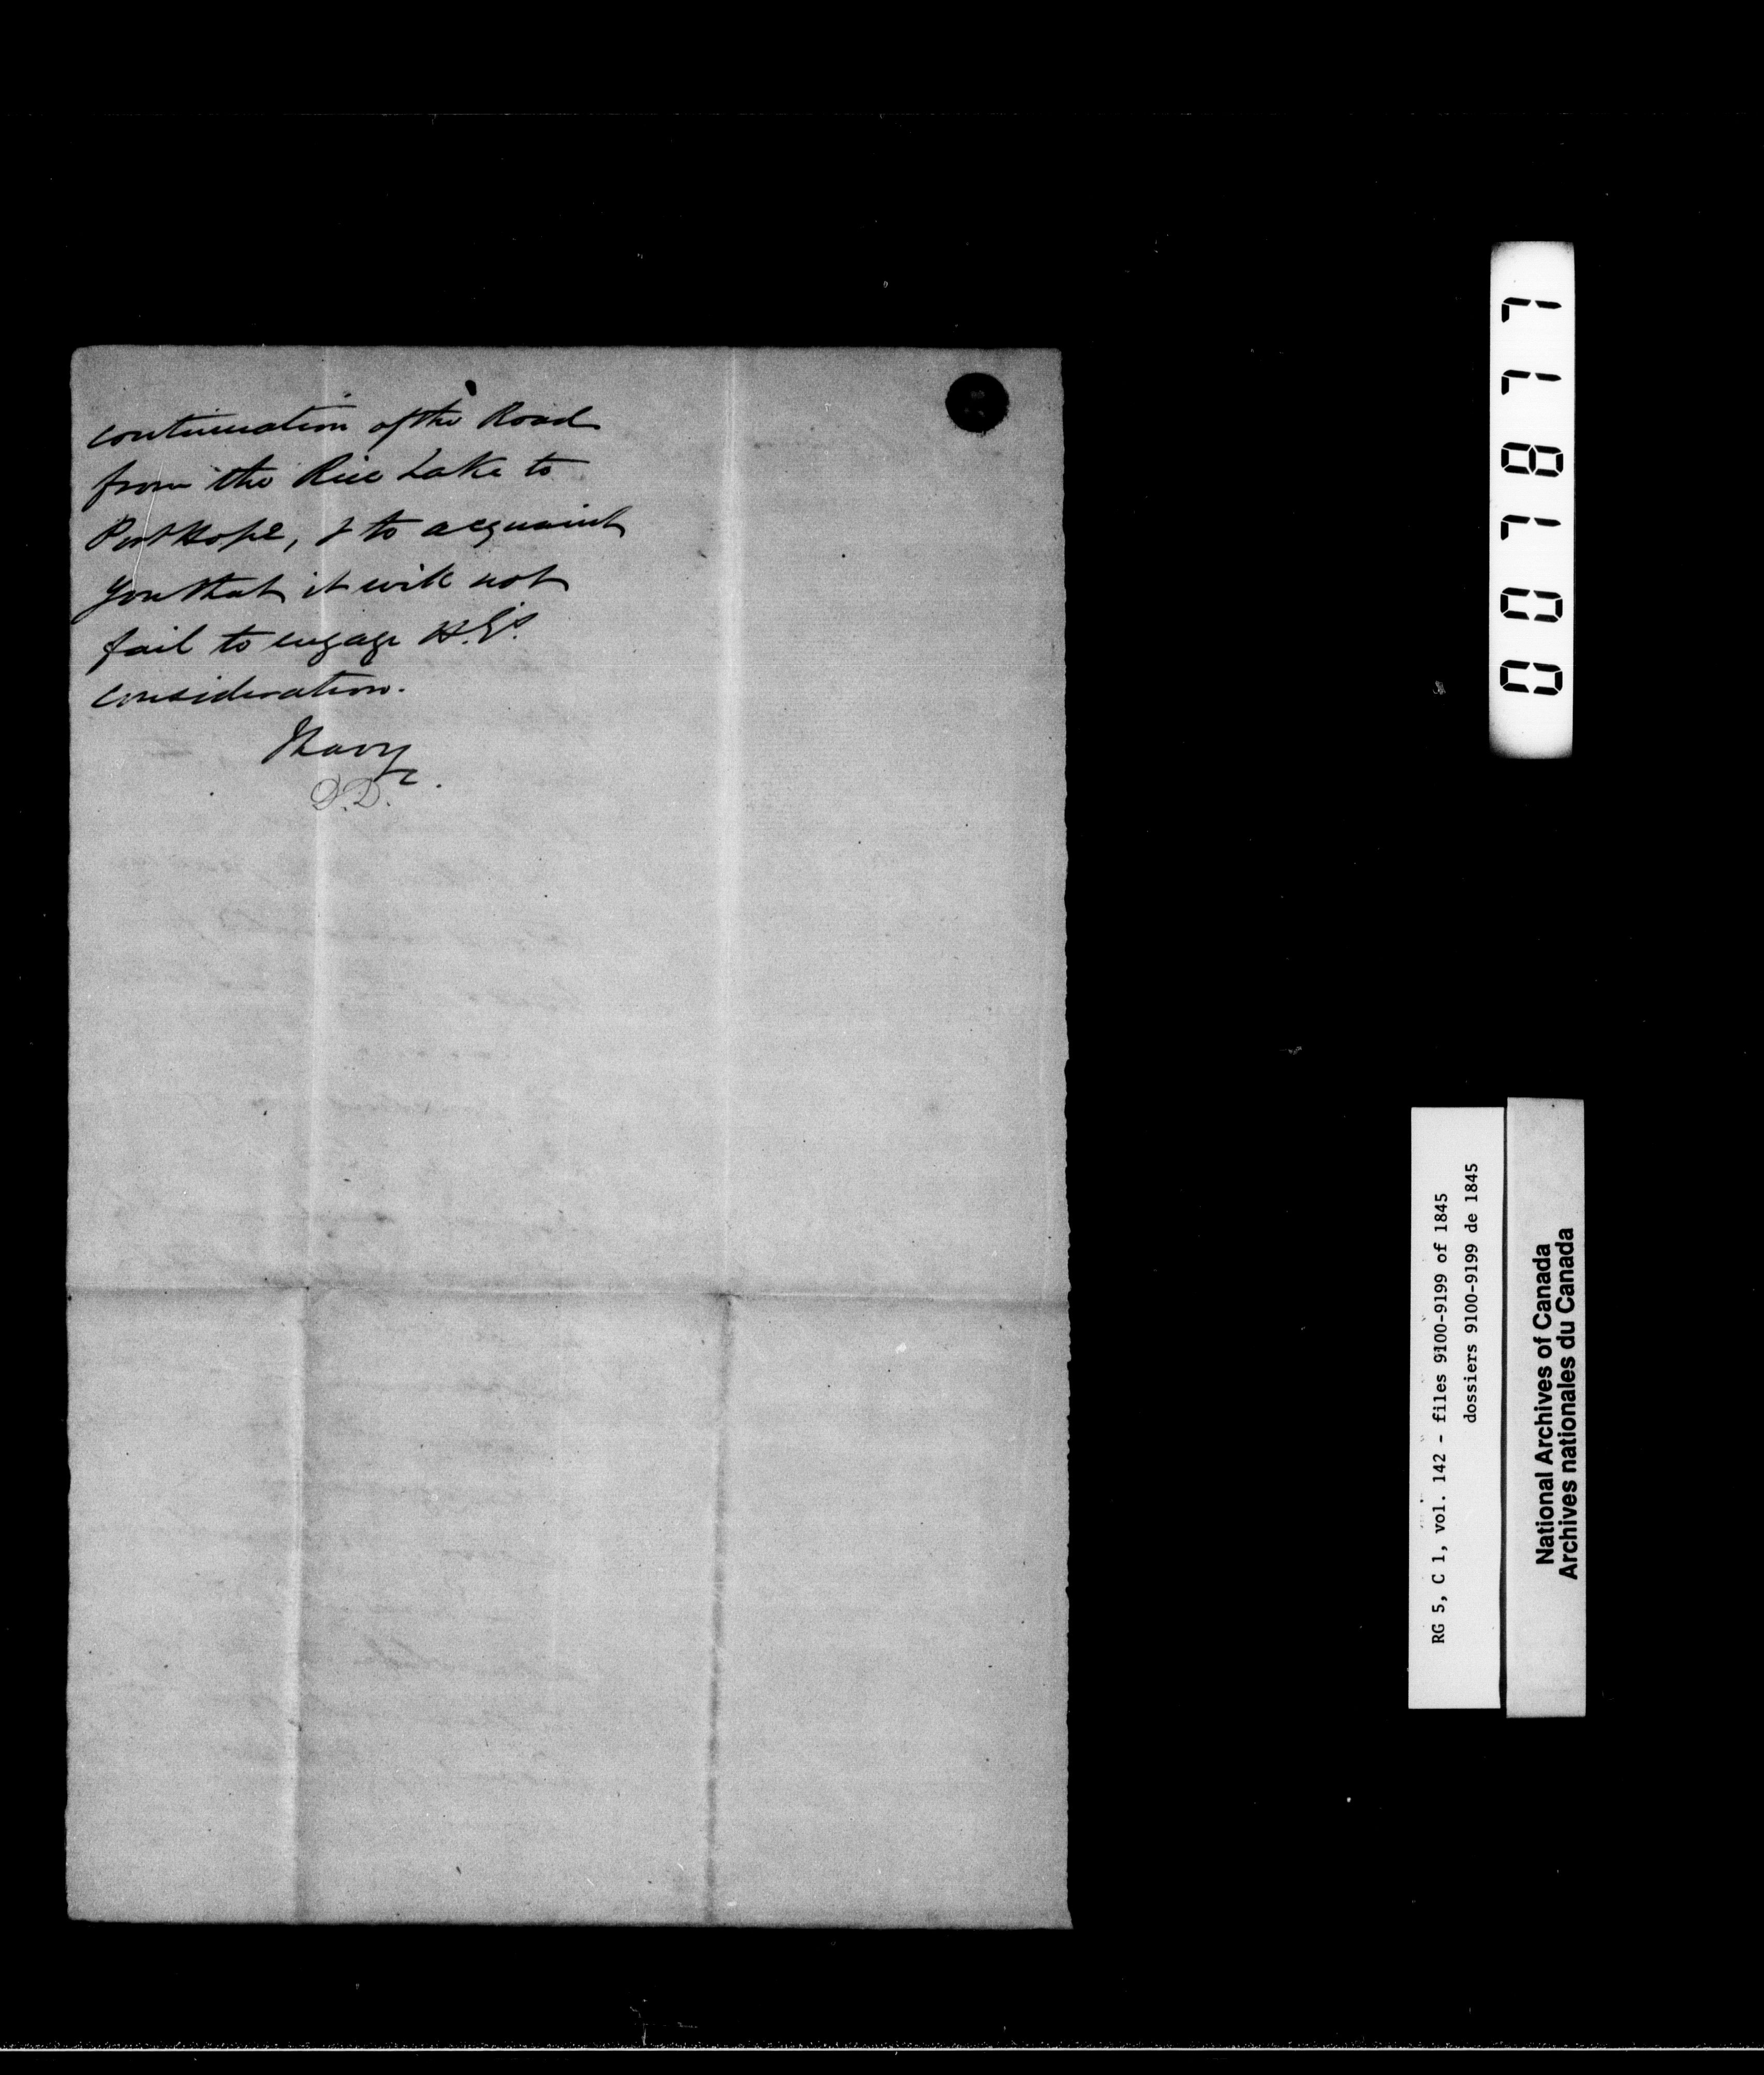 continuation of the Road
from the Rice Lake to
Port Hope, & to acquaint
you that it will not
fail to engage H.E's.
consideration.
I have
&c.
D.D.
007877
RG 5, C 1, vol. 142 - files 9100-9199 of 1845
dossiers 9100-9199 de 1845
National Archives of Canada
Archives nationales du Canada